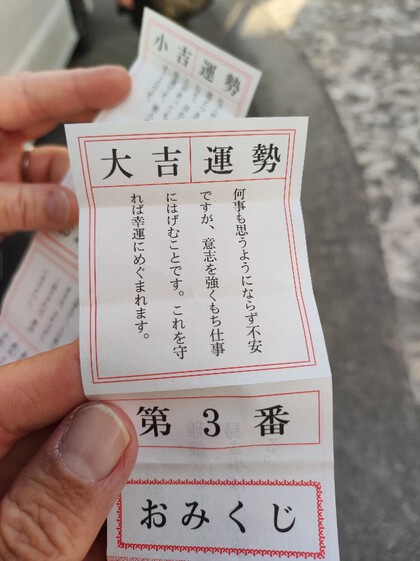 小吉運勢
大吉運勢
何事も思うようにならず不安
ですが、意志を強くもち仕事
にはげむことです。これを守
れば幸運にめぐまれます。
第3番
おみくじ